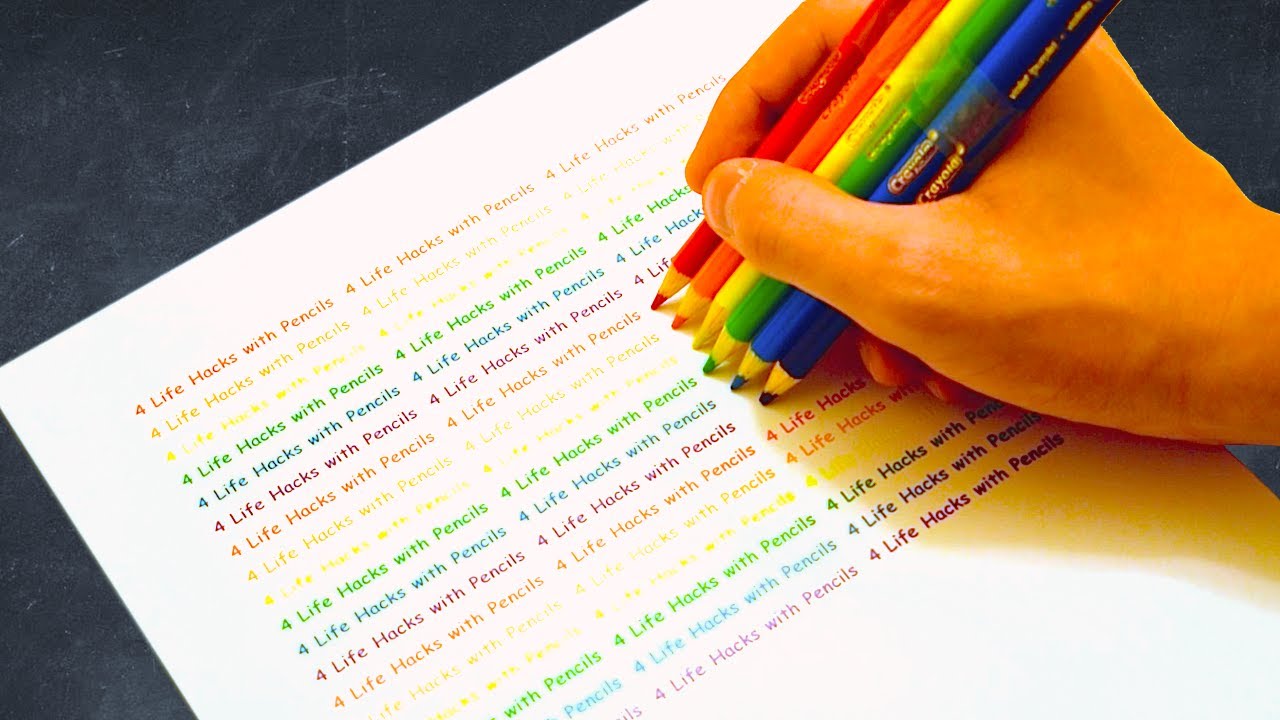 4 Life Hacks with Pencils 4 Life Hacks with Pencils 4 Life Hacks with Pencils
4 Life Hacks with Pencils 4 Life Hacks with Pencils 4 Life Hacks with
4 Life Hacks with Pencils 4 Life Hacks with Pencils 4 Life Hacks
4 Life Hacks with Pencils 4 Life Hacks with Pencils 4 Life Hacks
4 Life Hacks with Pencils 4 Life Hacks with Pencils 4 Life Hacks
4 Life Hacks with Pencils 4 Life Hacks with Pencils 4
4 Life Hacks with Pencils 4 Life Hacks with Pencils
4 Life Hacks with Pencils 4 Life Hacks with Pencils
4 Life Hacks with Pencils 4 Life Hacks with Pencils
4 Life Hacks with Pencils 4 Life Hacks with Pencils
4 Life Hacks with Pencils 4 Life Hacks with Pencils
4 Life Hacks with Pencils 4 Life Hacks with Pencils
4 Life Hacks with Pencils 4 Life Hacks with Pencils 4 Life Hacks
Life Hacks with Pencils 4 Life Hacks with Pencils 4 Life Hacks with
Hacks with Pencils 4 Life Hacks with Pencils 4 Life
with Pencils 4 Life Hacks with Pencils 4 Life Hacks with
with Pencils 4 Life Hacks with Pencils 4 Life Hacks with Pencils
4 Life Hacks with Pencils 4 Life Hacks with Pencils
Crayola
Crayola
Crayola
Crayola
Crayola
Crayola